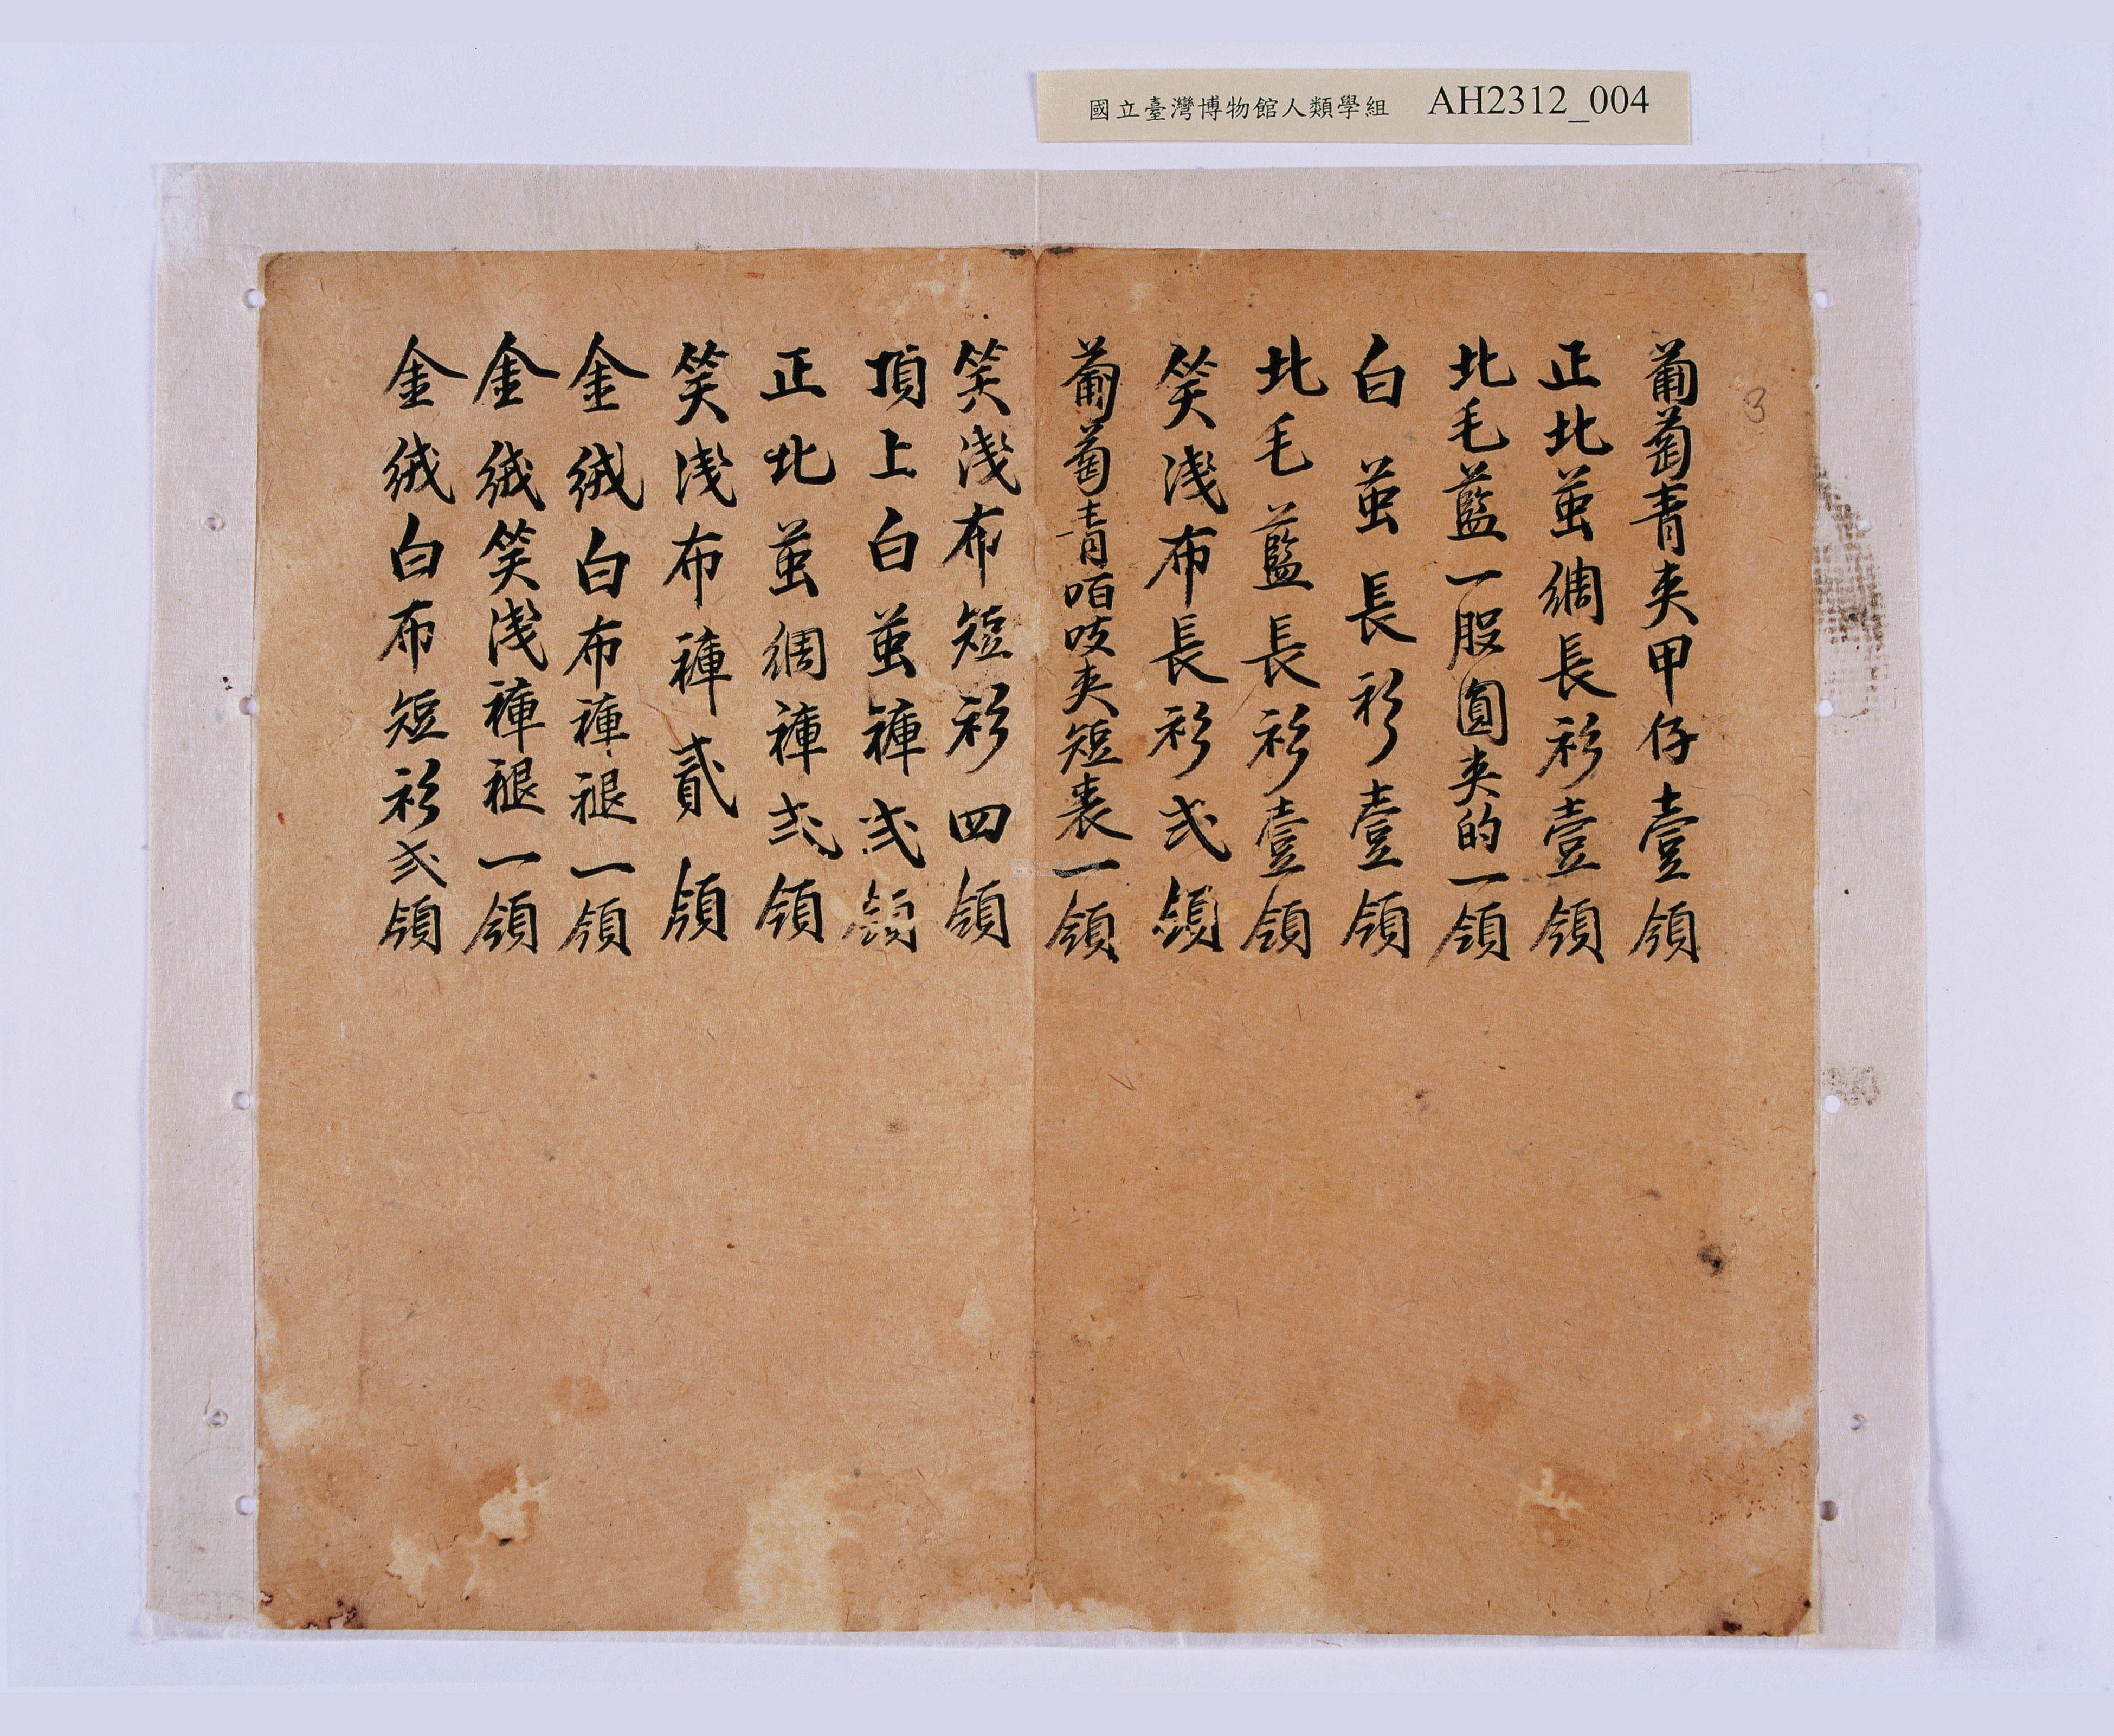 國立臺灣博物館人類學組 AH2312_004
3
葡萄青夹甲仔壹領
正北茧綢長衫壹領
北毛藍一股圓夹的一領
白茧長衫壹領
北毛藍長衫壹領
笑浅布長衫弍領
葡萄青咟吱夹短裘一領
笑浅布短衫四領
頂上白茧褲弍領
正北茧綢褲弍領
笑浅布褲貳領
金絨白布褲褪一領
金絨笑浅褲褪一領
金絨白布短衫弍領